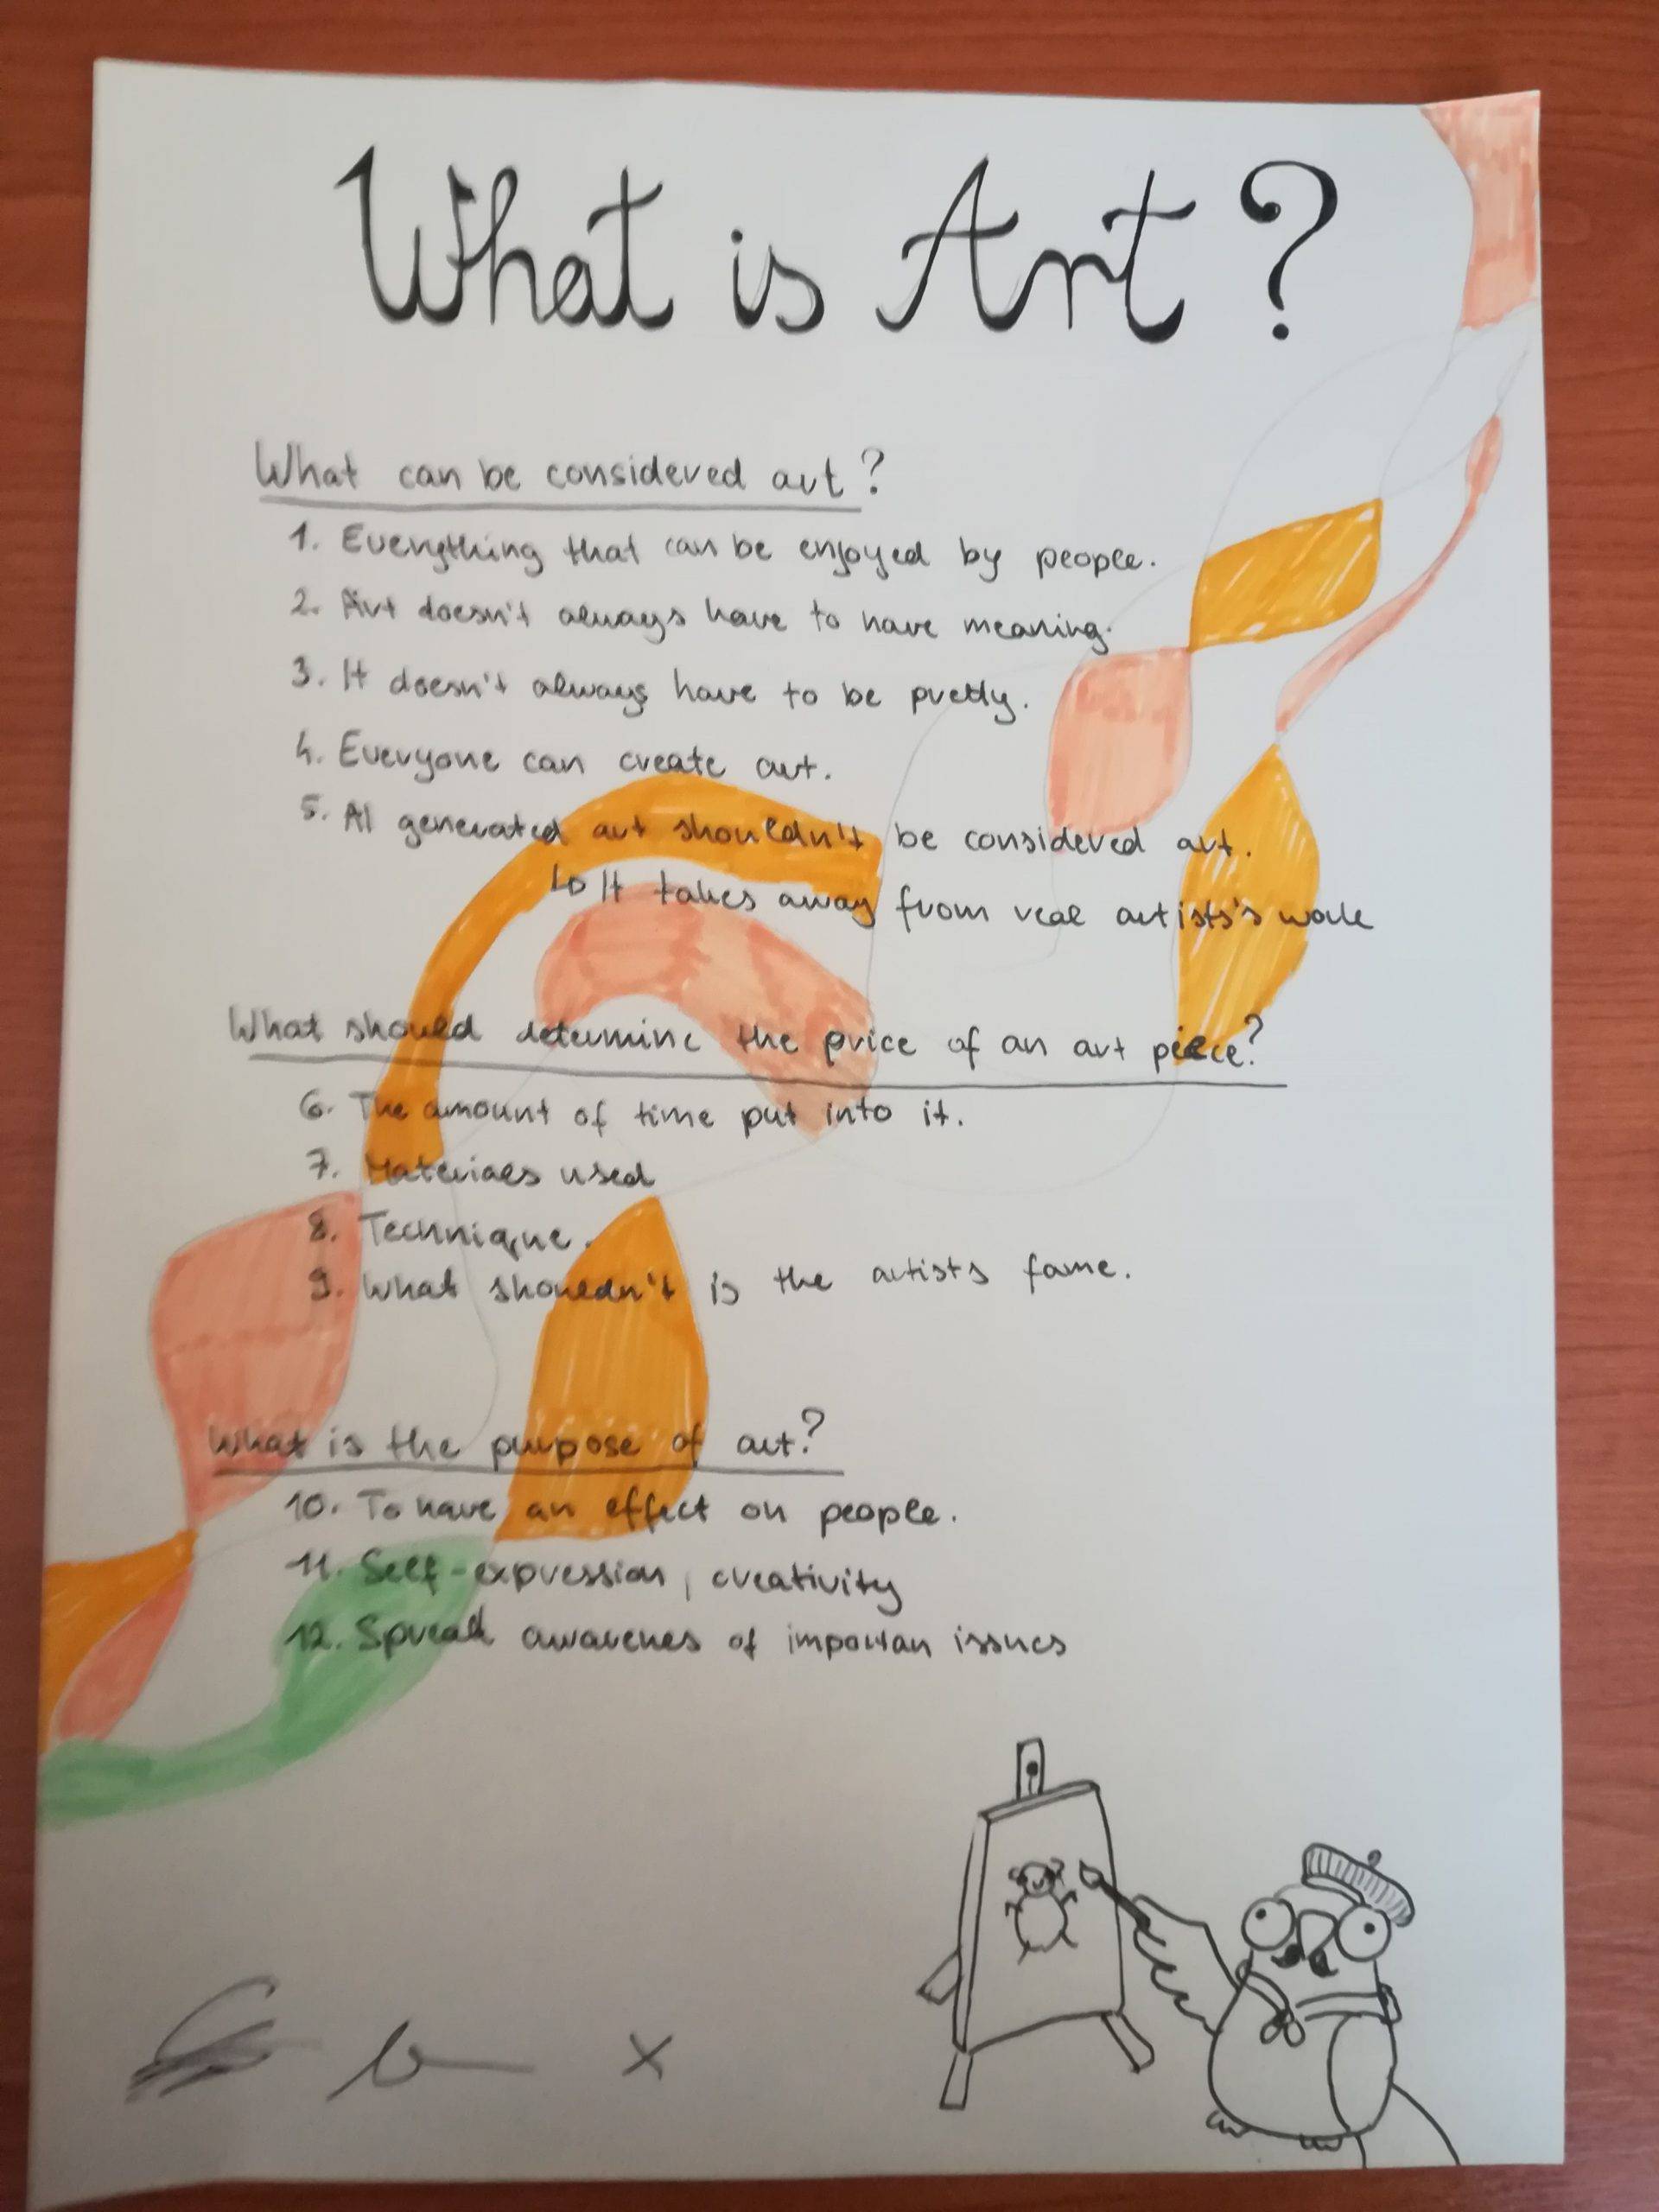 What is Art?
What can be considered art?
1. Everything that can be enjoyed by people.
2. Art doesn't always have to have meaning.
3. It doesn't always have to be pretty.
4. Everyone can create art.
5. AI generated art shouldn't be considered art.
↳ It takes away from real artists's work
What should determine the price of an art piece?
6. The amount of time put into it.
7. Materials used
8. Technique.
9. What shouldn't is the artists fame.
What is the purpose of art?
10. To have an effect on people.
11. Self-expression, creativity
12. Spread awarenes of importan issues
x